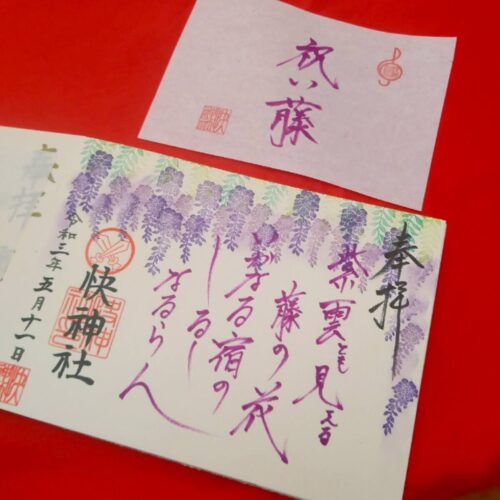 祝い藤
奉拝
紫雲とも見ゆる
藤の花
いかなる宿の
しるし
なるらん
快神社
令和三年五月十一日